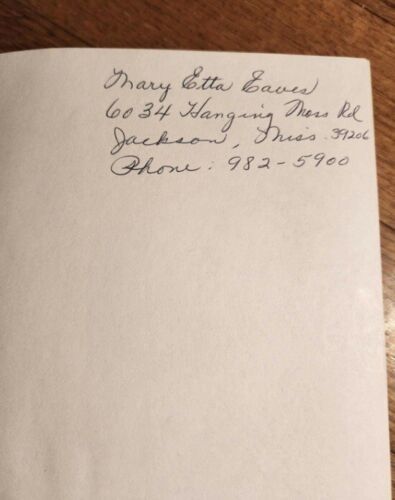 Mary Etta Eaves
6034 Hanging Moss Rd
Jackson, Miss. 39206
Phone: 982-5900